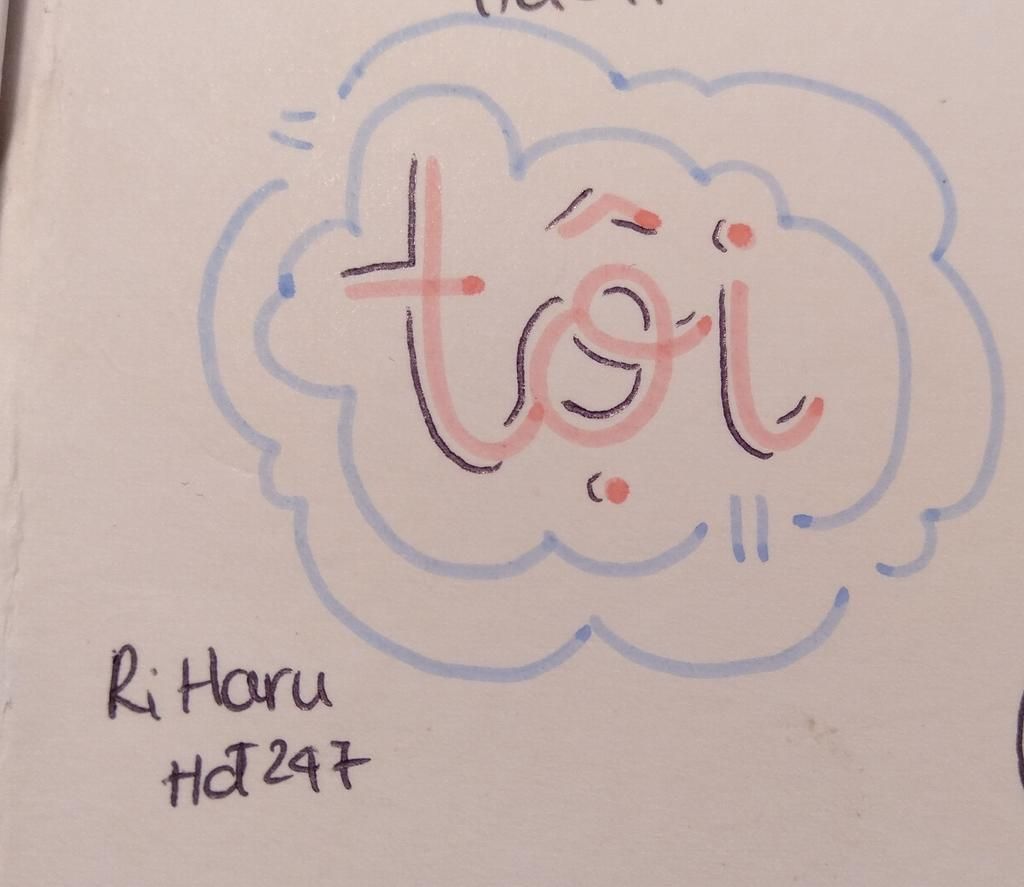 tội
Ri Haru
HdT247